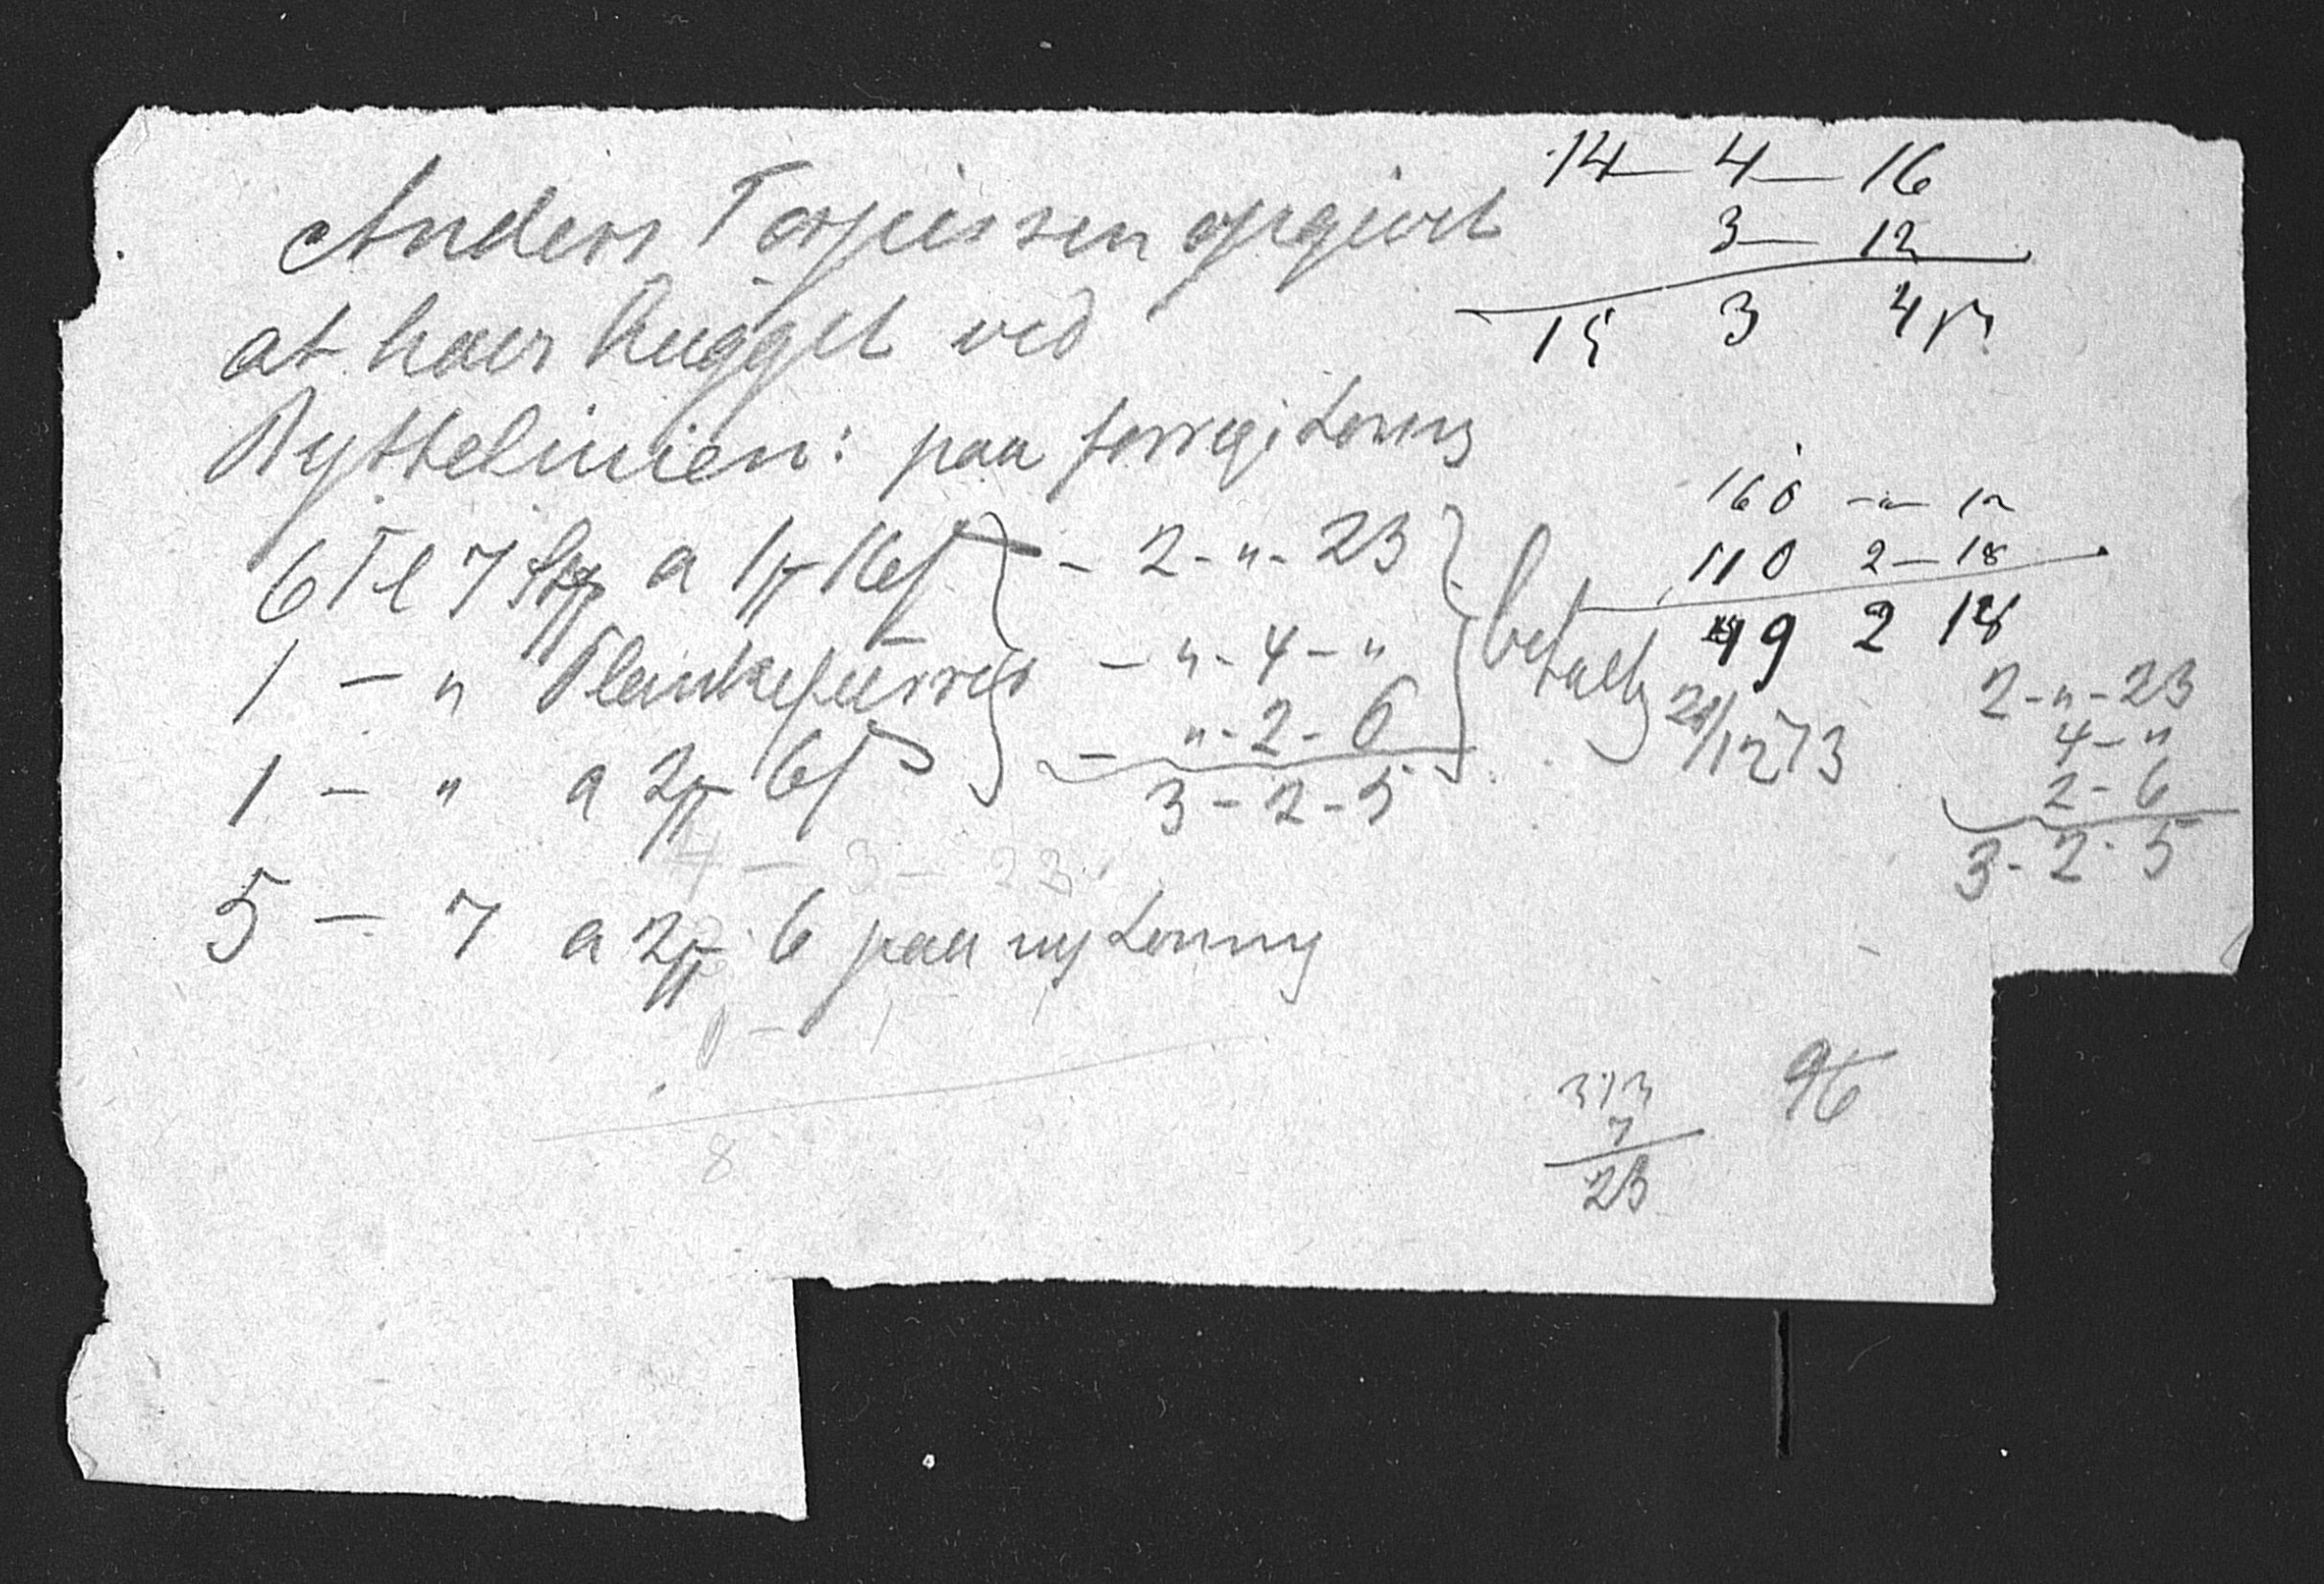 Anders Torjussen opgivet
at haver hugget ved
Byttelinien: paa forrige Lonning
6 Tl 7 a 1 16 - 2-"-23
1 - " - "-4-"
1 - " a 2 6 - "-2-6
3-2-5
betalt
21/12 73
5 - 7 a 2 6 paa ny Lonning
4 - 3 - 23
8
14 - 4 - 16
3 - 12
15 3 4
160 - " - 12
110 2 - 18
49 2 18
2-"-23
4-"
2-6
3-2-5
313
7
23
96